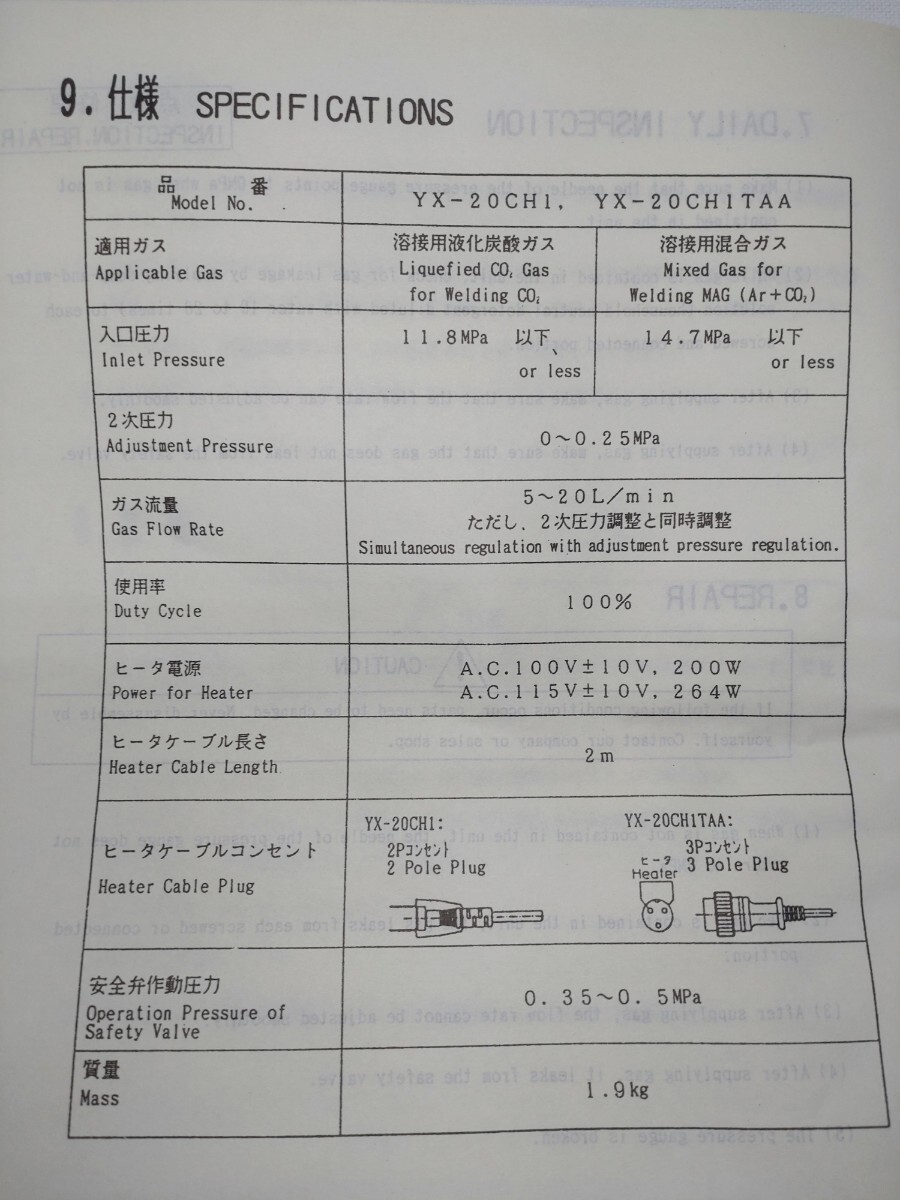 9. 仕様 SPECIFICATIONS
品 番
Model No.
YX-20CH1, YX-20CH1TAA
適用ガス
Applicable Gas
溶接用液化炭酸ガス
Liquefied CO₂ Gas
for Welding CO₂
溶接用混合ガス
Mixed Gas for
Welding MAG (Ar+CO₂)
入口圧力
Inlet Pressure
11.8MPa 以下、
or less
14.7MPa 以下
or less
2次圧力
Adjustment Pressure
0～0.25MPa
ガス流量
Gas Flow Rate
5～20L/min
ただし、2次圧力調整と同時調整
Simultaneous regulation with adjustment pressure regulation.
使用率
Duty Cycle
100%
ヒータ電源
Power for Heater
A.C.100V±10V, 200W
A.C.115V±10V, 264W
ヒータケーブル長さ
Heater Cable Length
2m
ヒータケーブルコンセント
Heater Cable Plug
YX-20CH1:
2Pコンセント
2 Pole Plug
YX-20CH1TAA:
3Pコンセント
3 Pole Plug
ヒータ
Heater
安全弁作動圧力
Operation Pressure of
Safety Valve
0.35～0.5MPa
質量
Mass
1.9kg